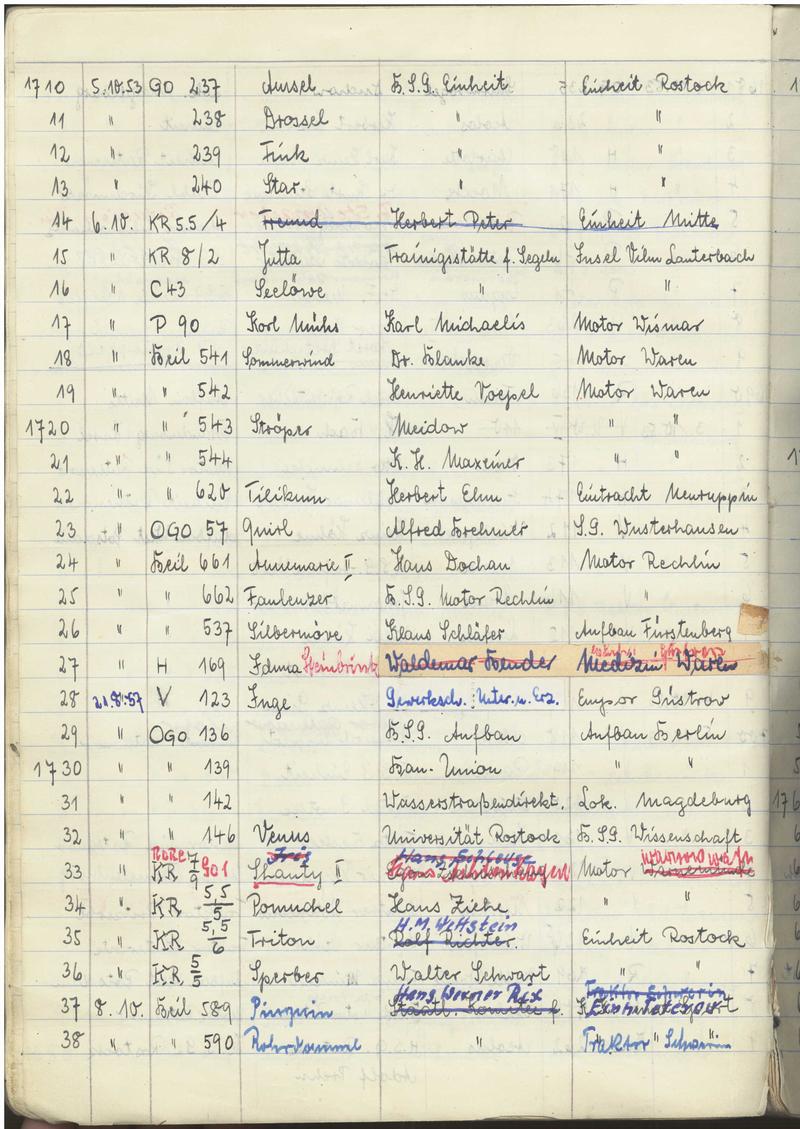 1710 5.10.53 GO 237 Amsel B.S.G. Einheit Einheit Rostock
11 " 238 Drossel " "
12 " 239 Fink " "
13 " 240 Star " "
14 6.10. KR 5.5/4 Freund Herbert Peter Einheit Mitte
15 " KR 8/2 Jutta Trainigsstätte f. Segeln Insel Vilm Lauterbach
16 " C 43 Seelöwe " "
17 " P 90 Korl Mühs Karl Michaelis Motor Wismar
18 " Beil 541 Sommerwind Dr. Blanke Motor Waren
19 " " 542 Henriette Voepel Motor Waren
1720 " " 543 Ströper Meidow " "
21 " " 544 K. H. Maxeiner " "
22 " " 620 Tilikum Herbert Elm Eintracht Neuruppin
23 " OGO 57 Quirl Alfred Brehmer S.G. Wusterhausen
24 " Beil 661 Annemarie II Hans Dochan Motor Rechlin
25 " " 662 Faulenzer B.S.G. Motor Rechlin "
26 " " 537 Silbermöve Klaus Schläfer Aufbau Fürstenberg
27 " H 169 Steinbrink Waldemar Bender Medizin Waren
28 21.8.57 V 123 Inge Gewerksch. Unter. u. Erz. Empor Güstrow
29 " OGO 136 B.S.G. Aufbau Aufbau Berlin
1730 " " 139 Bau-Union " "
31 " " 142 Wasserstraßendirekt. Lok. Magdeburg
32 " " 146 Venus Universität Rostock B.S.G. Wissenschaft
RORC Iris warnow
33 " KR 7/9 901 Shanty II Motor Warnemünde
34 " KR 5,5/5 Pomuchel Hans Ziehe " "
H.M. Wettstein
35 " KR 5,5/6 Triton Rolf Richter. Einheit Rostock
36 " KR 5/5 Sperber Walter Schwart " "
Hans Werner Rix Traktor Schwerin
37 8.10. Beil 589 Pinguin
38 " " 590 Rohrdommel " Traktor Schwerin